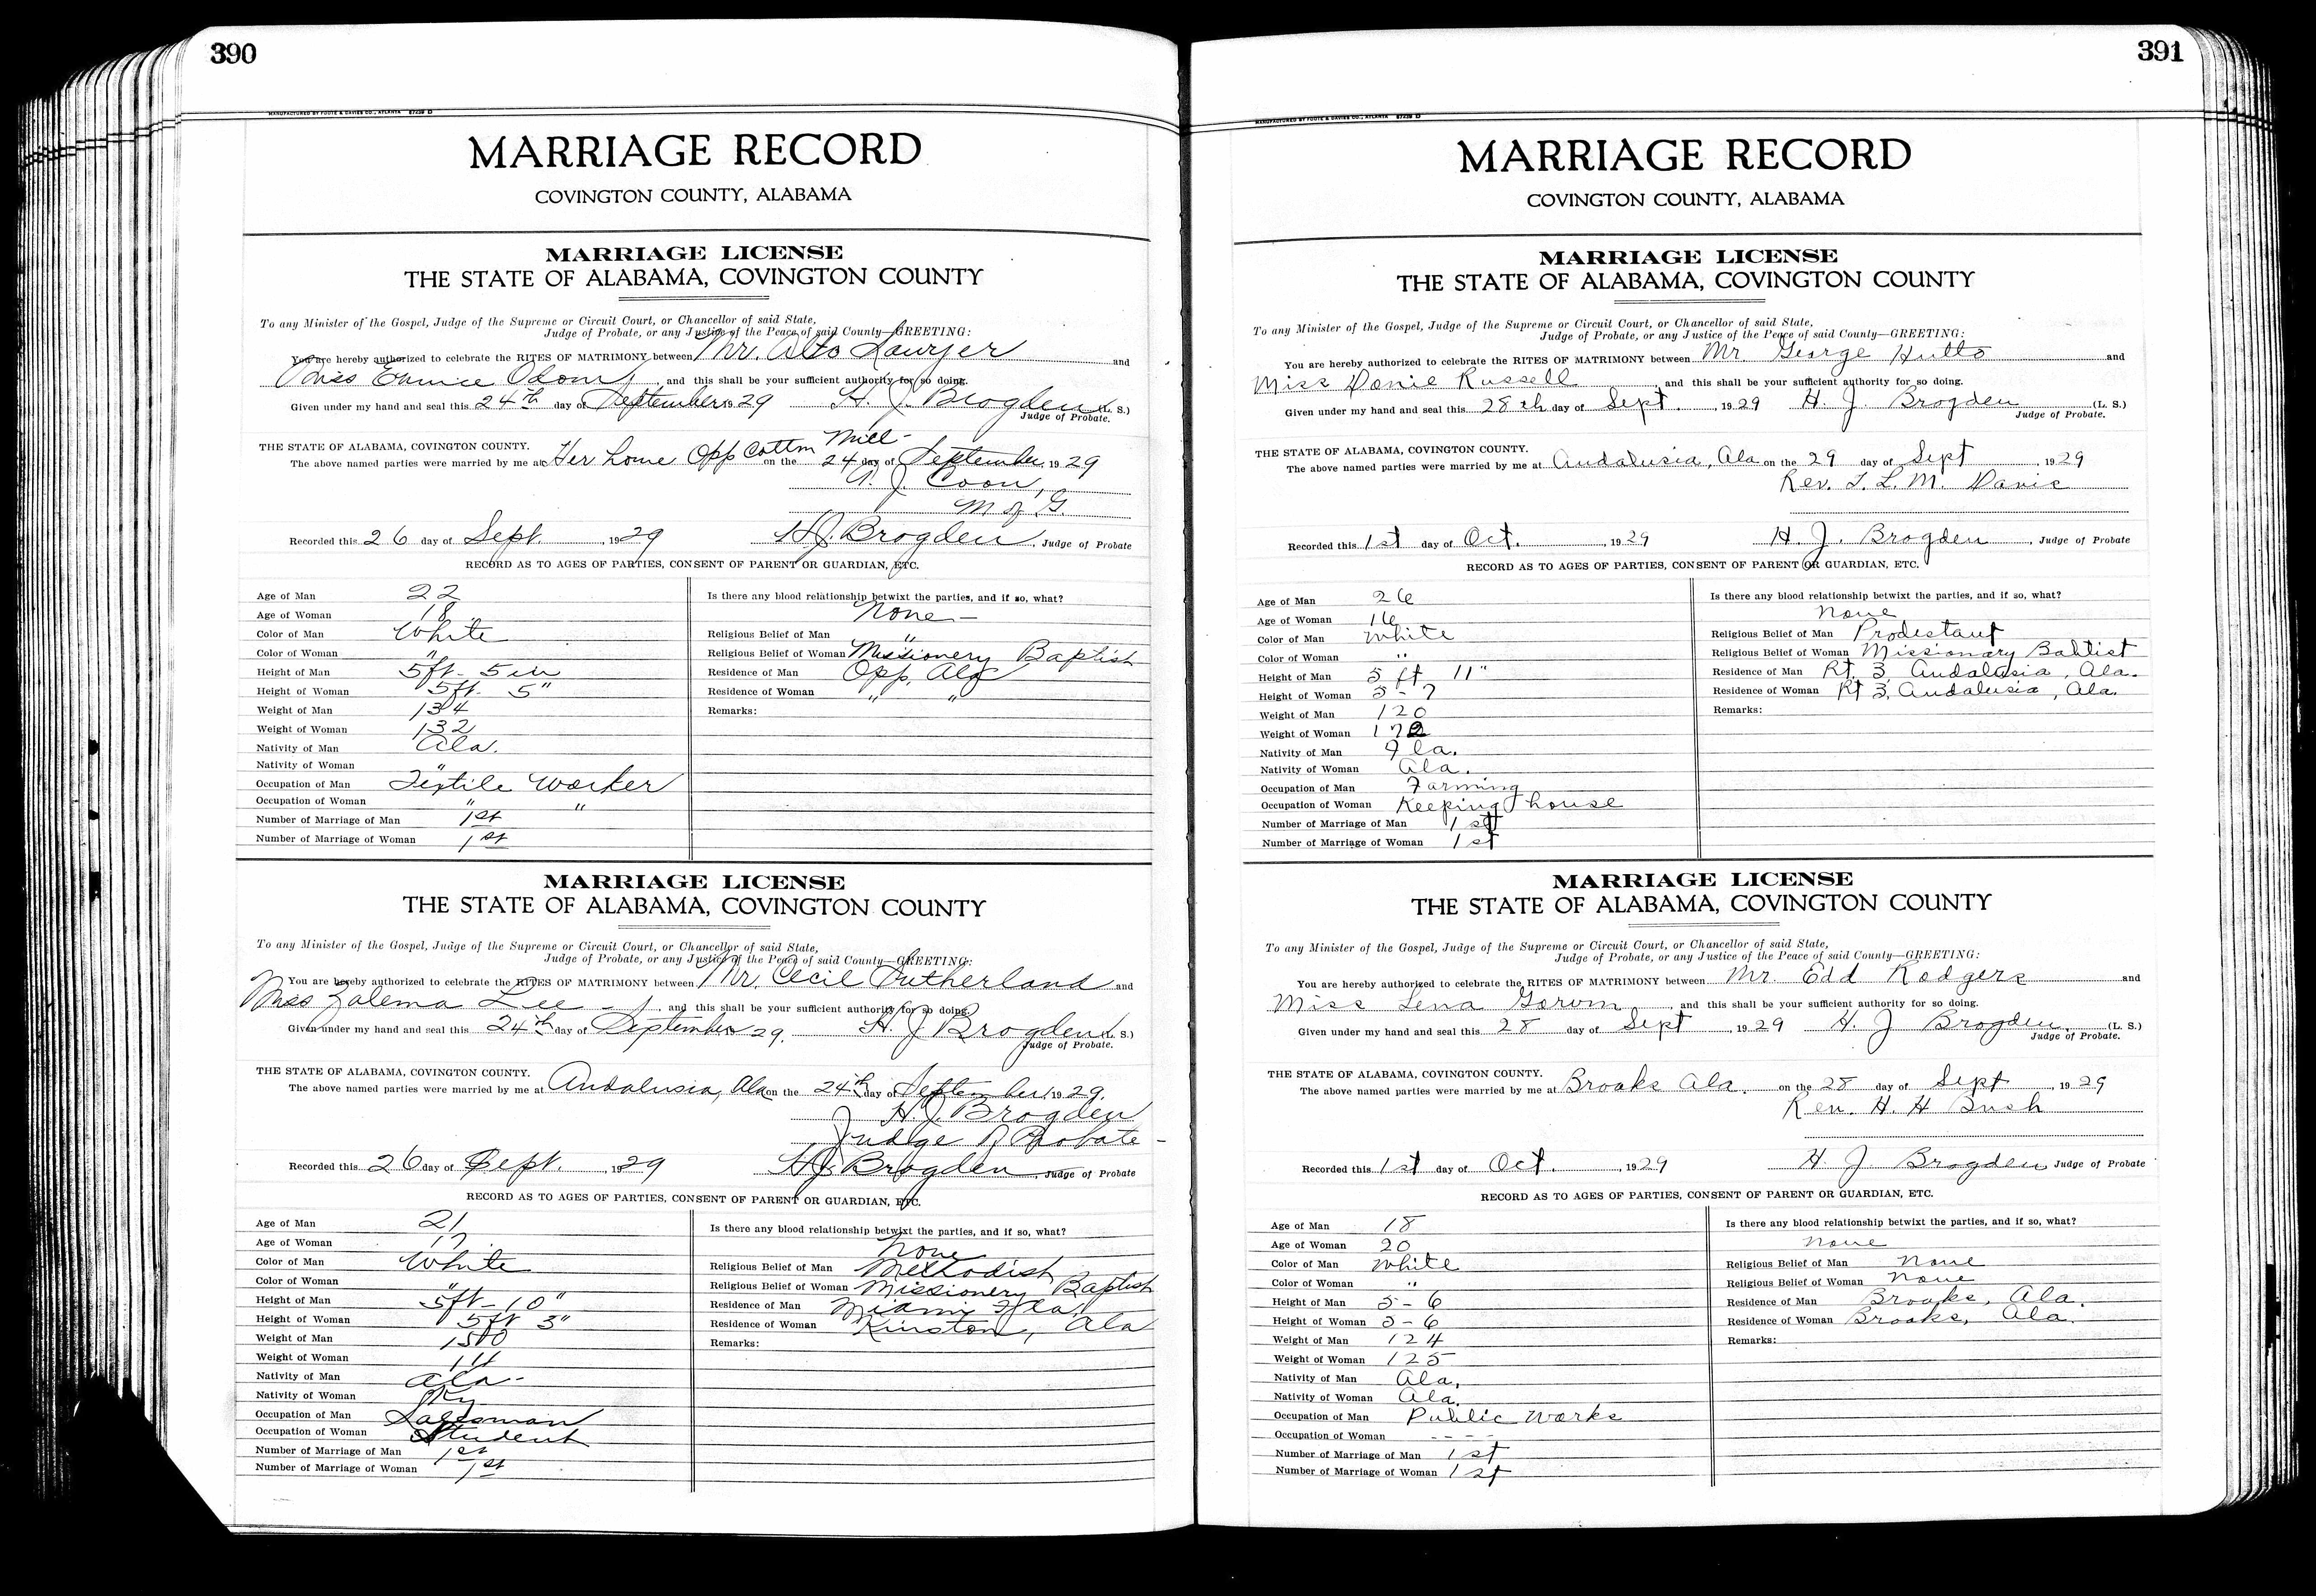 390
MANUFACTURED BY FOOTE & DAVIES CO., ATLANTA 87238 D
MARRIAGE RECORD
COVINGTON COUNTY, ALABAMA
MARRIAGE LICENSE
THE STATE OF ALABAMA, COVINGTON COUNTY
To any Minister of the Gospel, Judge of the Supreme or Circuit Court, or Chancellor of said State,
Judge of Probate, or any Justice of the Peace of said County—GREETING:
You are hereby authorized to celebrate the RITES OF MATRIMONY between Mr. Alto Lawyer and
Miss Eunice Odom, and this shall be your sufficient authority for so doing.
Given under my hand and seal this 24th day of September 1929 H. J. Brogden (L. S.)
Judge of Probate.
THE STATE OF ALABAMA, COVINGTON COUNTY.
The above named parties were married by me at Her home Opp Cotton Mill- on the 24 day of September 1929
J. Coon,
M of G.
Recorded this 26 day of Sept. , 1929 H. J. Brogden, Judge of Probate
RECORD AS TO AGES OF PARTIES, CONSENT OF PARENT OR GUARDIAN, ETC.
Age of Man 22
Age of Woman 18
Color of Man White
Color of Woman "
Height of Man 5ft- 5in
Height of Woman 5ft- 5"
Weight of Man 134
Weight of Woman 132
Nativity of Man Ala.
Nativity of Woman "
Occupation of Man Textile Worker
Occupation of Woman " "
Number of Marriage of Man 1st
Number of Marriage of Woman 1st
Is there any blood relationship betwixt the parties, and if so, what?
None -
Religious Belief of Man "
Religious Belief of Woman Missionery Baptish
Residence of Man Opp, Ala
Residence of Woman " "
Remarks:
MARRIAGE LICENSE
THE STATE OF ALABAMA, COVINGTON COUNTY
To any Minister of the Gospel, Judge of the Supreme or Circuit Court, or Chancellor of said State,
Judge of Probate, or any Justice of the Peace of said County—GREETING:
You are hereby authorized to celebrate the RITES OF MATRIMONY between Mr. Cecil Sutherland and
Miss Zalema Lee, and this shall be your sufficient authority for so doing.
Given under my hand and seal this 24th day of September 1929. H. J. Brogden (L. S.)
Judge of Probate.
THE STATE OF ALABAMA, COVINGTON COUNTY.
The above named parties were married by me at Andalusia, Ala on the 24th day of September 1929.
H. J. Brogden
Judge of Probate -
Recorded this 26 day of Sept. , 1929 H. J. Brogden, Judge of Probate
RECORD AS TO AGES OF PARTIES, CONSENT OF PARENT OR GUARDIAN, ETC.
Age of Man 21
Age of Woman 17
Color of Man White
Color of Woman "
Height of Man 5ft- 10"
Height of Woman 5ft 3"
Weight of Man
Weight of Woman 111
Nativity of Man Ala-
Nativity of Woman Ky
Occupation of Man Salesman
Occupation of Woman Student
Number of Marriage of Man 1st
Number of Marriage of Woman 1st
Is there any blood relationship betwixt the parties, and if so, what?
None
Religious Belief of Man Methodish
Religious Belief of Woman Missionery Baptish
Residence of Man Miami Fla,
Residence of Woman Kinston, Ala
Remarks:
391
MANUFACTURED BY FOOTE & DAVIES CO., ATLANTA 87238 D
MARRIAGE RECORD
COVINGTON COUNTY, ALABAMA
MARRIAGE LICENSE
THE STATE OF ALABAMA, COVINGTON COUNTY
To any Minister of the Gospel, Judge of the Supreme or Circuit Court, or Chancellor of said State,
Judge of Probate, or any Justice of the Peace of said County—GREETING:
You are hereby authorized to celebrate the RITES OF MATRIMONY between Mr George Hutto and
Miss Donie Russell, and this shall be your sufficient authority for so doing.
Given under my hand and seal this 28th day of Sept. , 1929 H. J. Brogden (L. S.)
Judge of Probate.
THE STATE OF ALABAMA, COVINGTON COUNTY.
The above named parties were married by me at Andalusia, Ala on the 29 day of Sept , 1929
Rev. T. L. M. Davis
Recorded this 1st day of Oct. , 1929 H. J. Brogden, Judge of Probate
RECORD AS TO AGES OF PARTIES, CONSENT OF PARENT OR GUARDIAN, ETC.
Age of Man 26
Age of Woman 16
Color of Man White
Color of Woman "
Height of Man 5 ft 11"
Height of Woman 5-7
Weight of Man 120
Weight of Woman 172
Nativity of Man Fla.
Nativity of Woman Ala.
Occupation of Man Farming
Occupation of Woman Keeping house
Number of Marriage of Man 1st
Number of Marriage of Woman 1st
Is there any blood relationship betwixt the parties, and if so, what?
None
Religious Belief of Man Prodestant
Religious Belief of Woman Missionary Babtist
Residence of Man Rt. 3, Andalusia, Ala.
Residence of Woman Rt 3, Andalusia, Ala.
Remarks:
MARRIAGE LICENSE
THE STATE OF ALABAMA, COVINGTON COUNTY
To any Minister of the Gospel, Judge of the Supreme or Circuit Court, or Chancellor of said State,
Judge of Probate, or any Justice of the Peace of said County—GREETING:
You are hereby authorized to celebrate the RITES OF MATRIMONY between Mr. Edd Rodgers and
Miss Lena Gorum, and this shall be your sufficient authority for so doing.
Given under my hand and seal this 28 day of Sept , 1929 H. J Brogden, (L. S.)
Judge of Probate.
THE STATE OF ALABAMA, COVINGTON COUNTY.
The above named parties were married by me at Brooks Ala. on the 28 day of Sept , 1929
Rev. H. H Bush
Recorded this 1st day of Oct. , 1929 H. J. Brogden, Judge of Probate
RECORD AS TO AGES OF PARTIES, CONSENT OF PARENT OR GUARDIAN, ETC.
Age of Man 18
Age of Woman 20
Color of Man White
Color of Woman "
Height of Man 5-6
Height of Woman 5-6
Weight of Man 124
Weight of Woman 125
Nativity of Man Ala,
Nativity of Woman Ala.
Occupation of Man Public Works
Occupation of Woman - - - -
Number of Marriage of Man 1st
Number of Marriage of Woman 1st
Is there any blood relationship betwixt the parties, and if so, what?
None
Religious Belief of Man None
Religious Belief of Woman None
Residence of Man Brooks, Ala.
Residence of Woman Brooks, Ala.
Remarks: